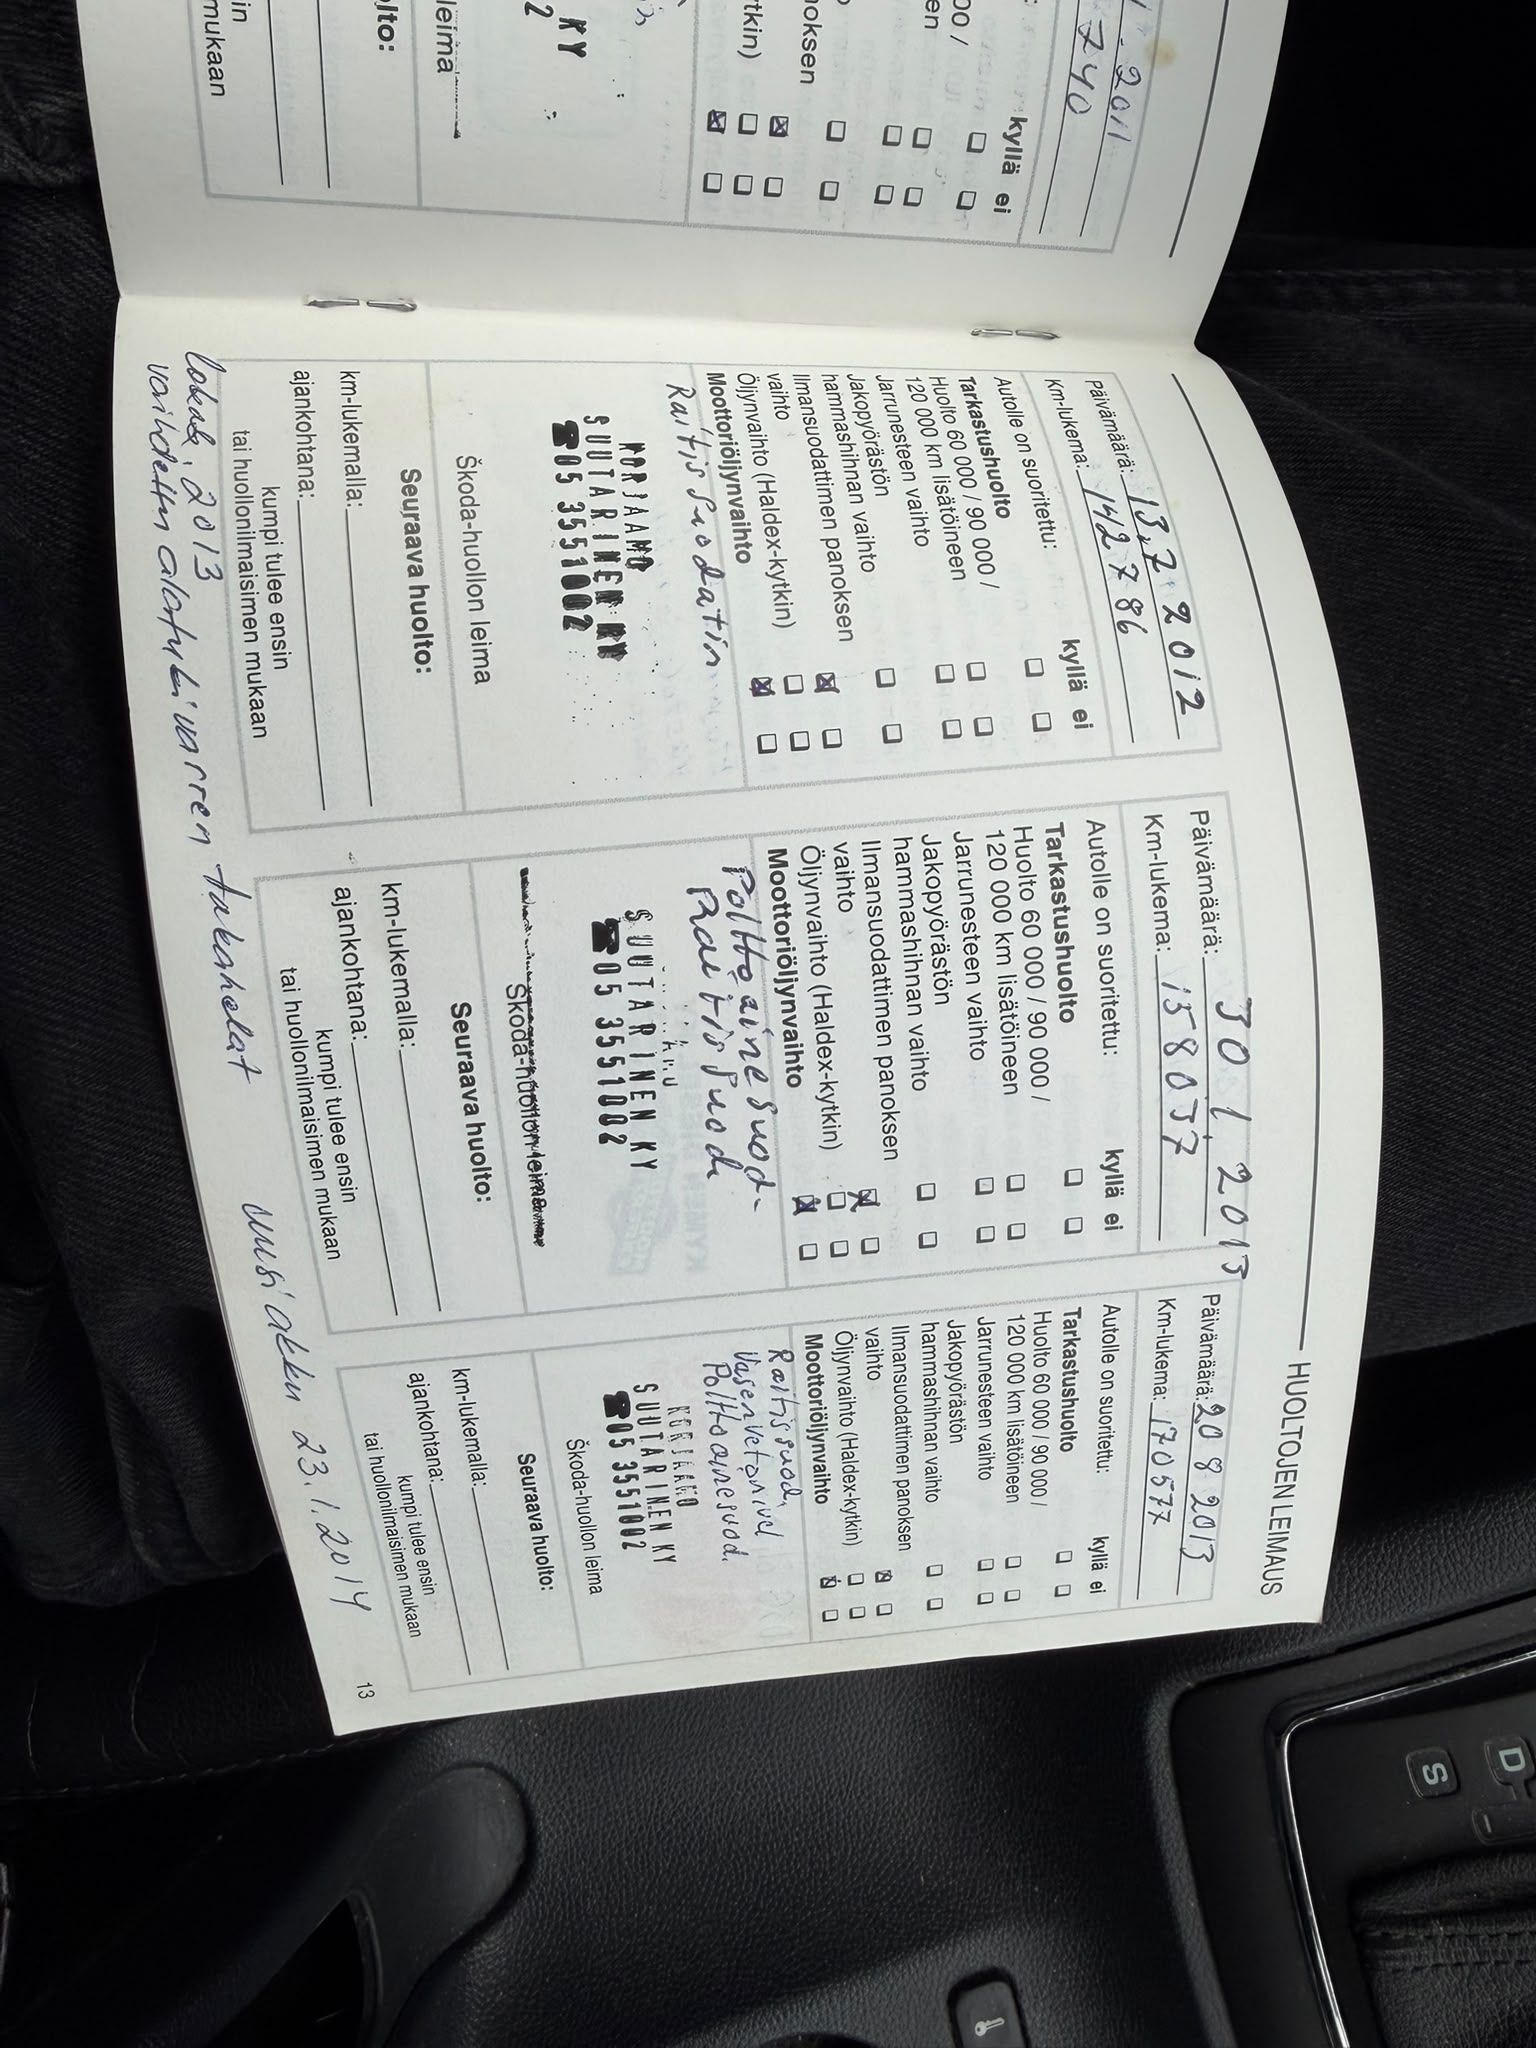 - 2011
740
00 /
en
noksen
tkin)
kyllä ei
KY
2
leima
lto:
in
mukaan
HUOLTOJEN LEIMAUS
Päivämäärä: 13.7 2012
Km-lukema: 142786
Autolle on suoritettu: kyllä ei
Tarkastushuolto
Huolto 60 000 / 90 000 /
120 000 km lisätöineen
Jarrunesteen vaihto
Jakopyörästön
hammashihnan vaihto
Ilmansuodattimen panoksen
vaihto
Öljynvaihto (Haldex-kytkin)
Moottoriöljynvaihto
Raitissuodatin
KORJAAMO
SUUTARINEN KY
☎05 3551002
Škoda-huollon leima
Seuraava huolto:
km-lukemalla:
ajankohtana:
kumpi tulee ensin
tai huollonilmaisimen mukaan
Päivämäärä: 30 1. 2013
Km-lukema: 158037
Autolle on suoritettu: kyllä ei
Tarkastushuolto
Huolto 60 000 / 90 000 /
120 000 km lisätöineen
Jarrunesteen vaihto
Jakopyörästön
hammashihnan vaihto
Ilmansuodattimen panoksen
vaihto
Öljynvaihto (Haldex-kytkin)
Moottoriöljynvaihto
Polttoainesuod.
Raitissuod
SUUTARINEN KY
☎05 3551002
Škoda-huollon leima
Seuraava huolto:
km-lukemalla:
ajankohtana:
kumpi tulee ensin
tai huollonilmaisimen mukaan
Päivämäärä: 20 8 2013
Km-lukema: 170577
Autolle on suoritettu: kyllä ei
Tarkastushuolto
Huolto 60 000 / 90 000 /
120 000 km lisätöineen
Jarrunesteen vaihto
Jakopyörästön
hammashihnan vaihto
Ilmansuodattimen panoksen
vaihto
Öljynvaihto (Haldex-kytkin)
Moottoriöljynvaihto
Raitissuod.
Vasen vetonivel
Polttoainesuod.
KORJAAMO
SUUTARINEN KY
☎05 3551002
Škoda-huollon leima
Seuraava huolto:
km-lukemalla:
ajankohtana:
kumpi tulee ensin
tai huollonilmaisimen mukaan
lokak. 2013
vaihdettu alatukivarren takahelat
uusi akku 23.1.2014
13
D
S